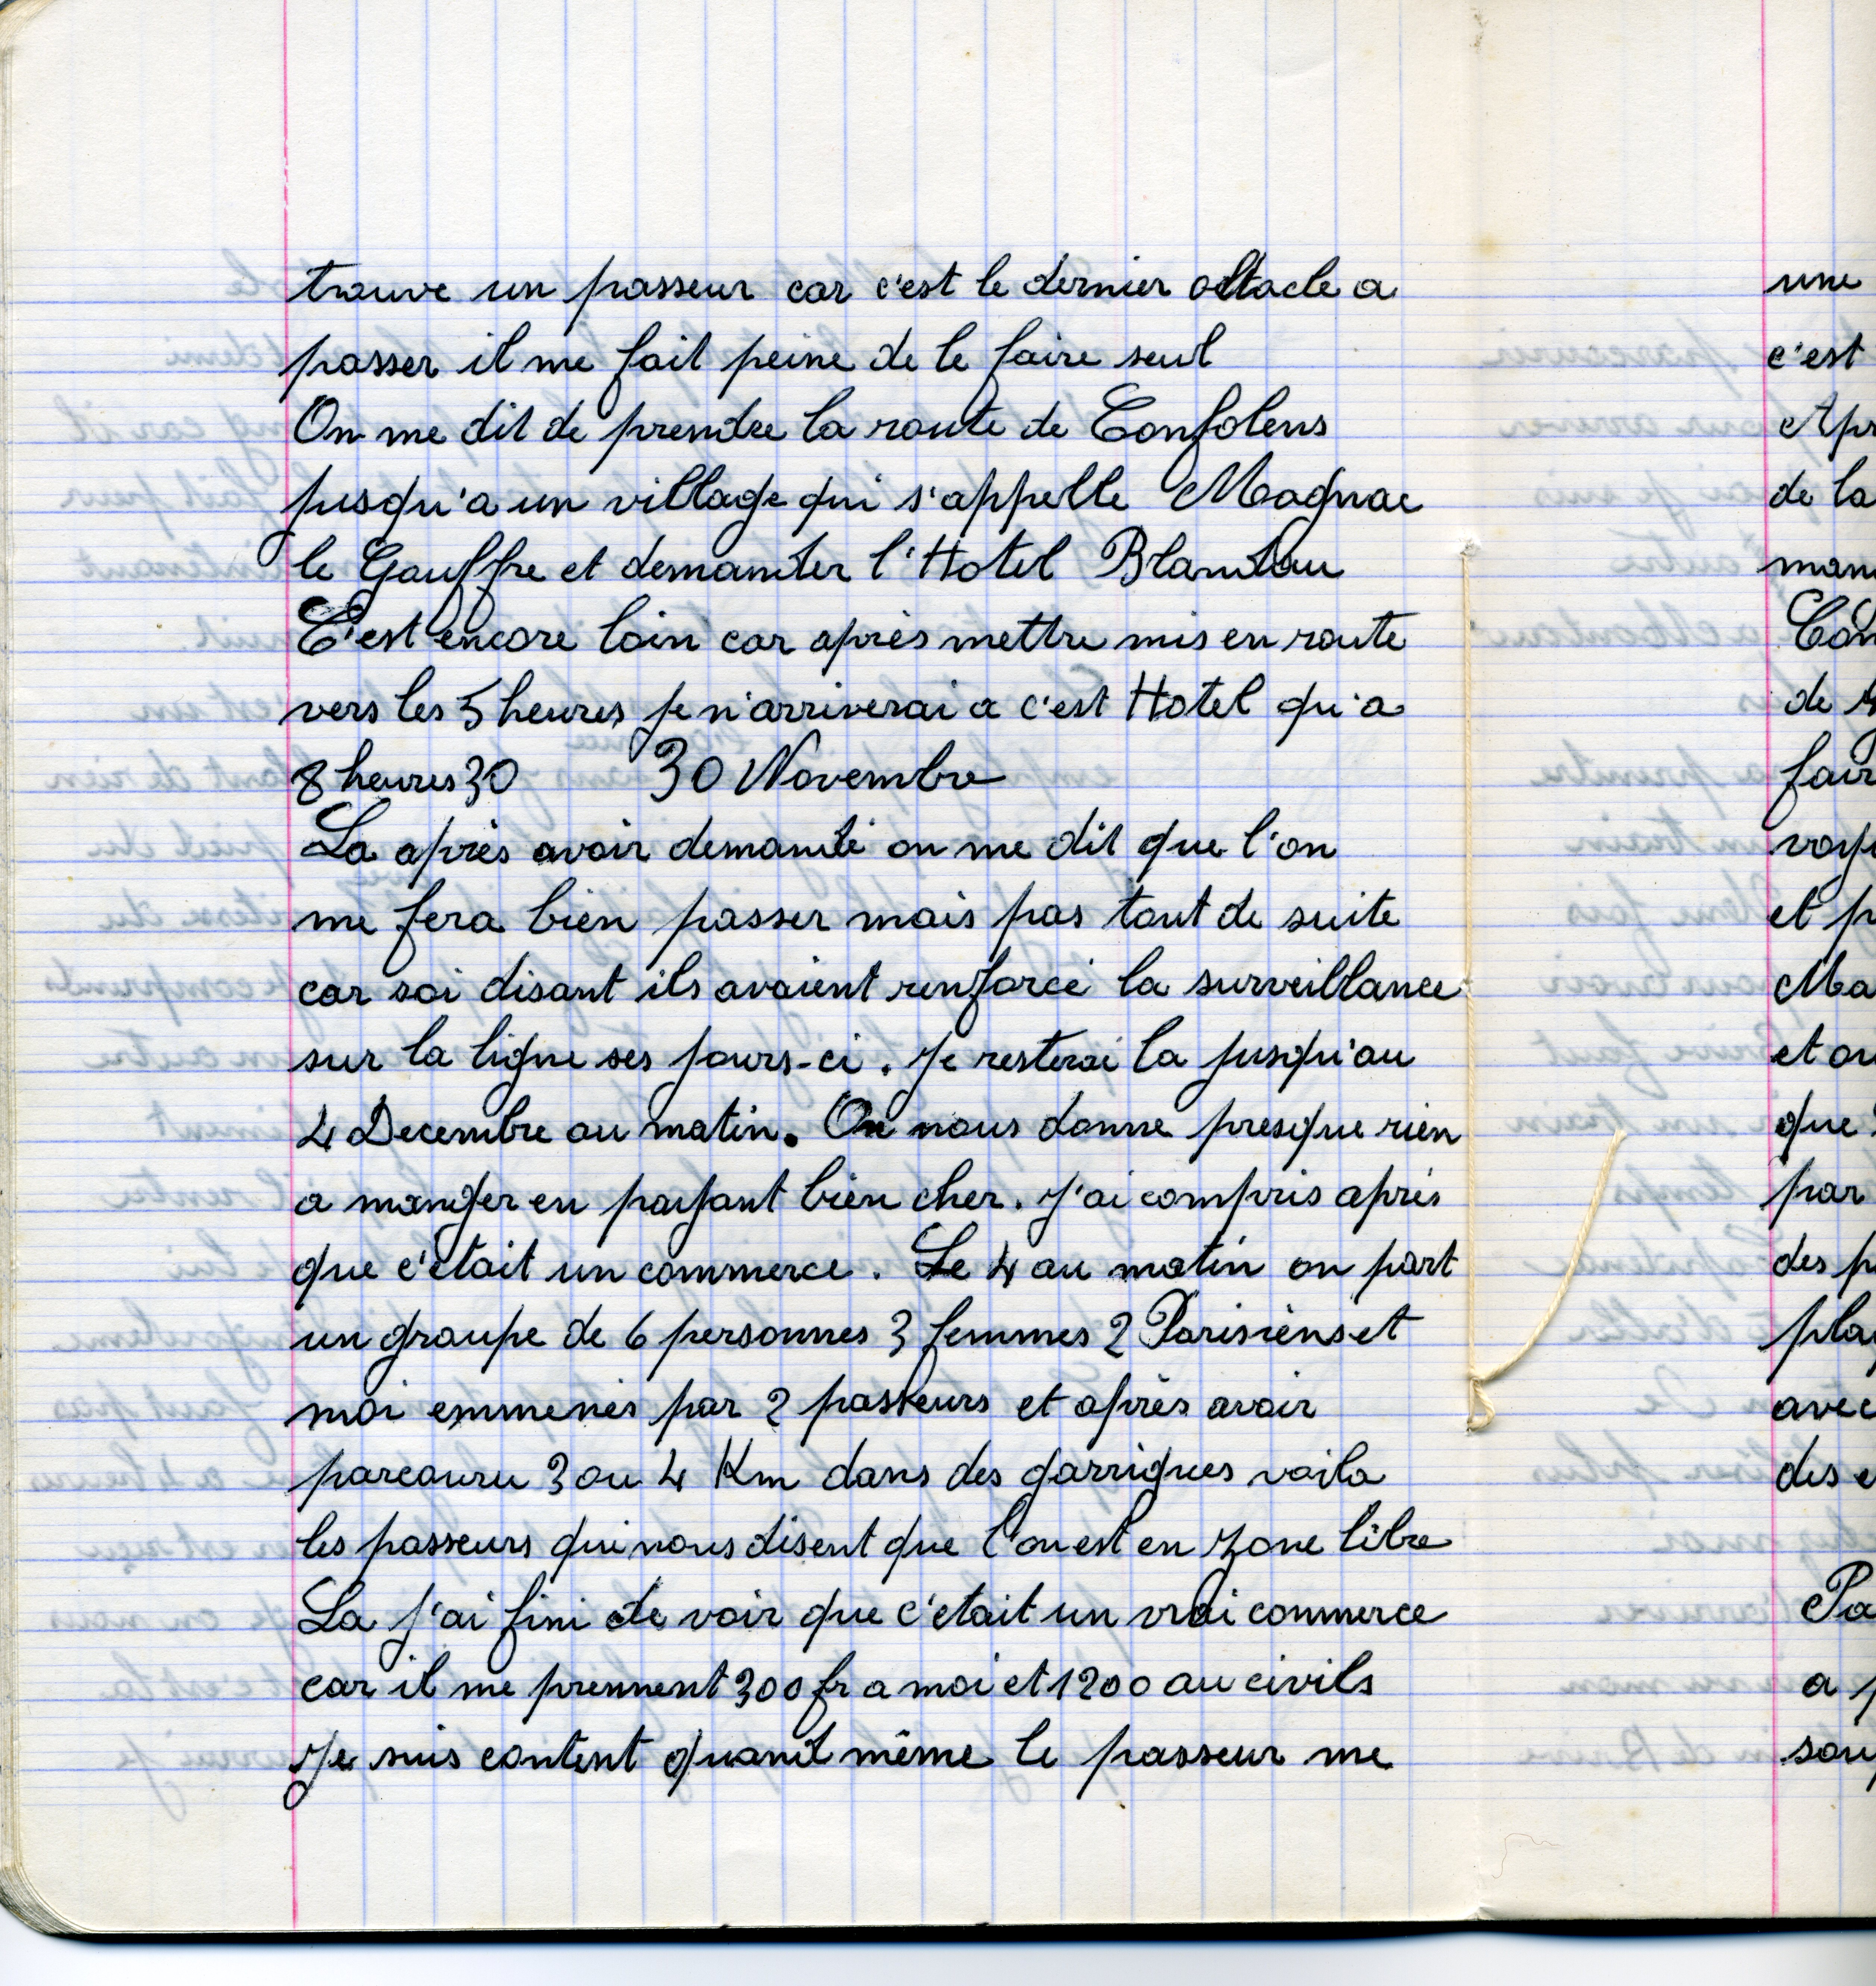 trouve un passeur car c'est le dernier obstacle a
passer il me fait peine de le faire seul
On me dit de prendre la route de Confolens
jusqu'a un village qui s'appelle Magnac
le Gouffre et demander l'Hotel Blandau
C'est encore loin car après mettre mis en route
vers les 5 heures je n'arriverai a c'est Hotel qu'a
8 heures 30 30 Novembre
La après avoir demandé on me dit que l'on
me fera bien passer mais pas tout de suite
car soi disant ils avaient renforcé la surveillance
sur la ligne ses jours-ci. Je resterai la jusqu'au
4 Decembre au matin. On nous donne presque rien
a manger en payant bien cher. J'ai compris après
que c'était un commerce. Le 4 au matin on part
un groupe de 6 personnes 3 femmes 2 Parisiens et
moi emmenés par 2 passeurs et après avoir
parcouru 3 ou 4 Km dans des garrigues voila
les passeurs qui nous disent que l'on est en zone libre
La j'ai fini de voir que c'etait un vrai commerce
car il me prennent 300 fr a moi et 1200 au civils
Je suis content quand même le passeur me
une
c'est
de la
de
et
Ma
que
par
des
avec
des
a